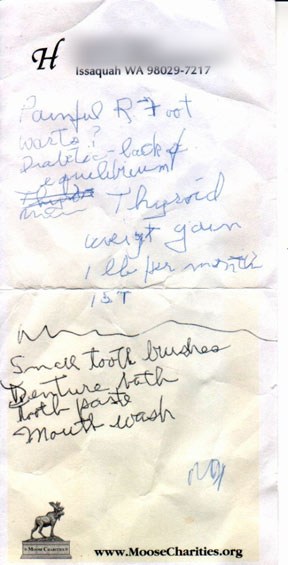 H
Issaquah WA 98029-7217
Painful R Foot
warts?
Diabetic - lack of
equilibrium
Thyroid
weigt gain
1 lb per month
1ST
Small tooth brushes
Denture bath
tooth paste
Mouth wash
MOOSE CHARITIES
www.MooseCharities.org